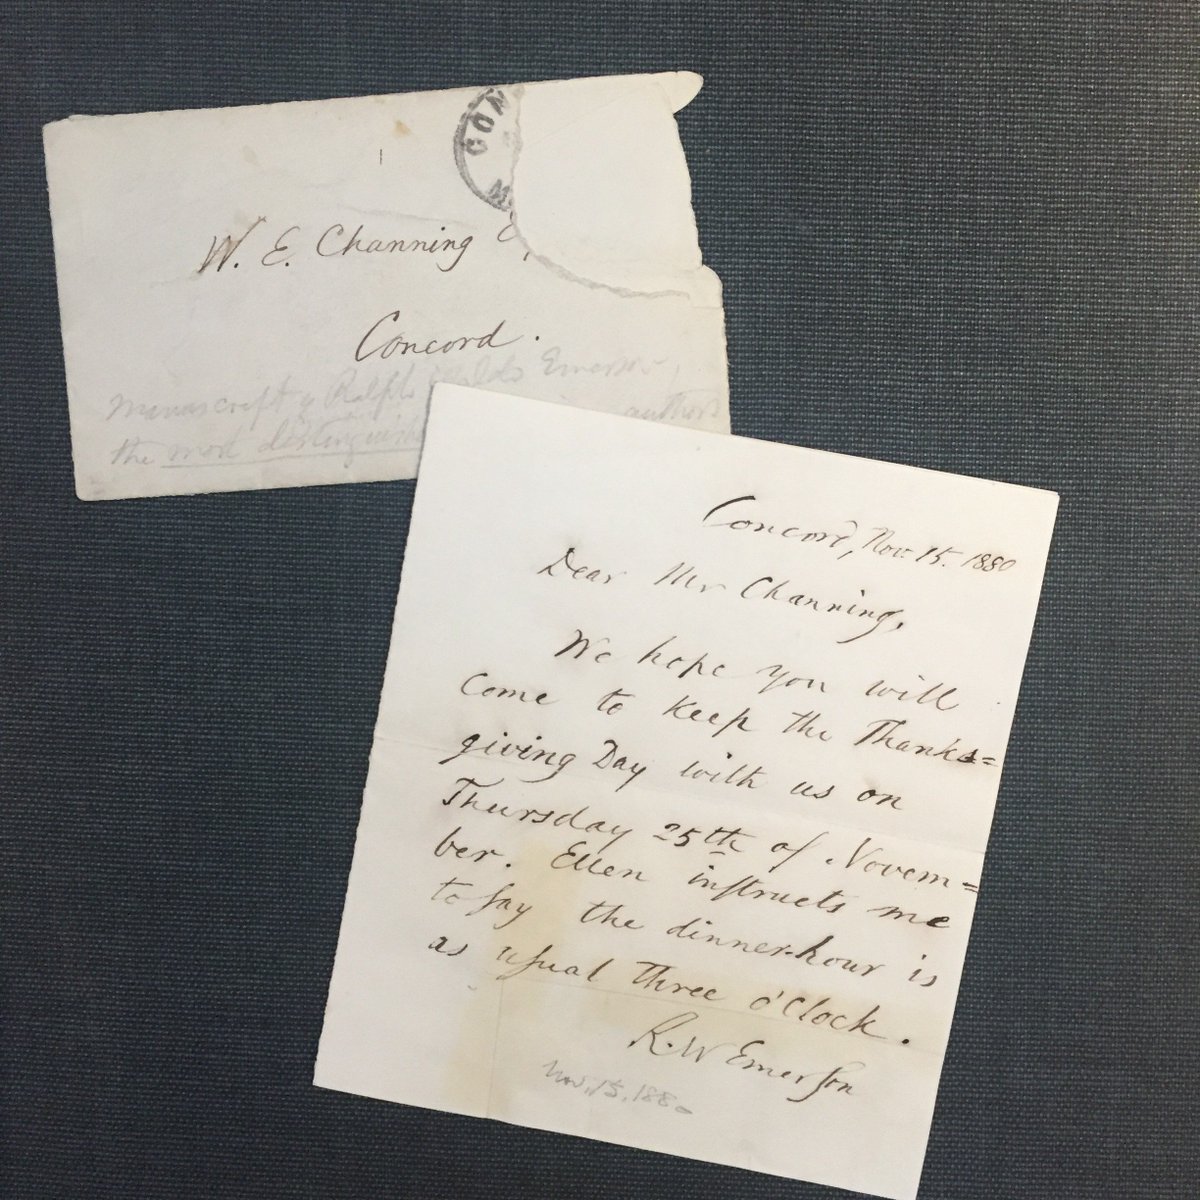 CON
M
W. E. Channing
Concord.
Manuscript of Ralph Waldo Emerson,
the most distinguished authors
Concord, Nov. 15. 1880
Dear Mr Channing,
We hope you will
come to keep the Thanks=
giving Day with us on
Thursday 25th of Novem=
ber. Ellen instructs me
to say the dinner-hour is
as usual three o'Clock.
R. W Emerson
Nov. 15. 1880